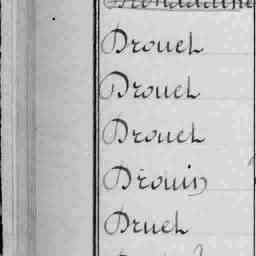 Drouet
Drouet
Drouet
Drouin
Druet